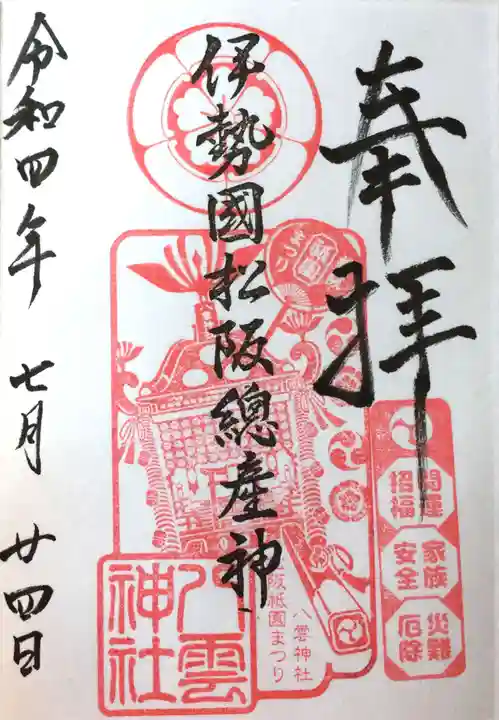 奉拝
開運
招福
家族
安全
災難
厄除
伊勢國松阪總産神
まつり
八雲神社
松阪祇園まつり
八雲
神社
令和四年 七月 廿四日